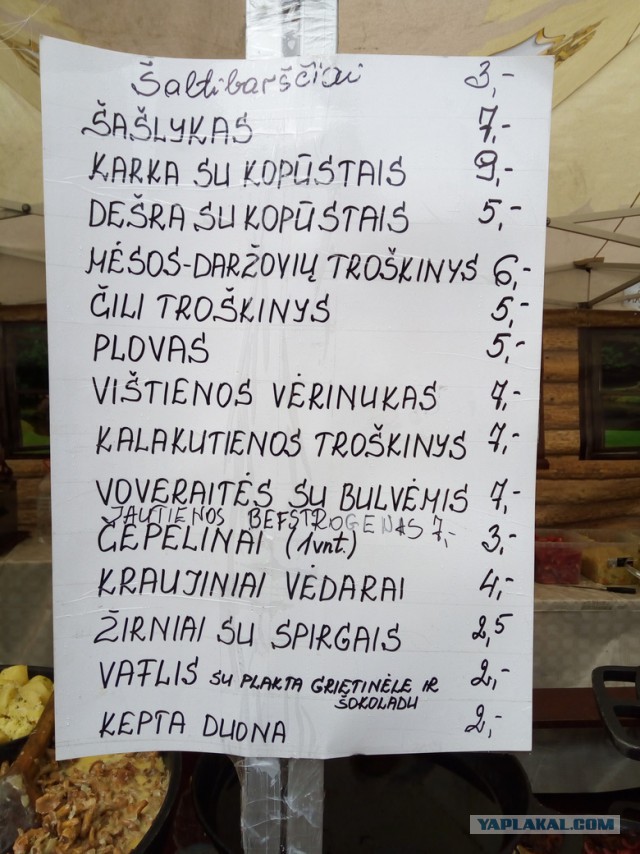 Šaltibarščiai 3,-
ŠAŠLYKAS 7,-
KARKA SU KOPŪSTAIS 9,-
DEŠRA SU KOPŪSTAIS 5,-
MĖSOS-DARŽOVIŲ TROŠKINYS 6,-
ČILI TROŠKINYS 5,-
PLOVAS 5,-
VIŠTIENOS VĖRINUKAS 7,-
KALAKUTIENOS TROŠKINYS 7,-
VOVERAITĖS SU BULVĖMIS 7,-
JAUTIENOS BEFSTROGENAS 7,-
ČEPELINAI (1vnt.) 3,-
KRAUJINIAI VĖDARAI 4,-
ŽIRNIAI SU SPIRGAIS 2,5
VAFLIS SU PLAKTA GRIETINĖLE IR 2,-
ŠOKOLADU
KEPTA DUONA 2,-
YAPLAKAL.COM